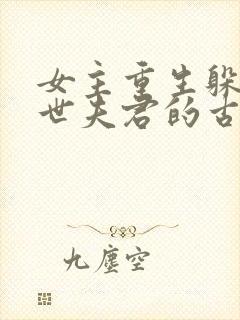 女主重生躲
世夫君的古
九塵空